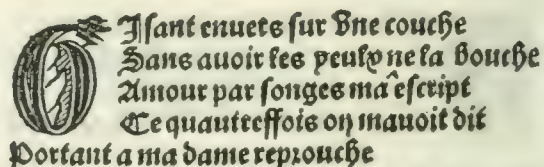 GIſant enuers ſur vne couche
Sans auoir les yeulx ne la bouche
Amour par ſonges ma eſcript
Ce quautreffois on mauoit dit
Portant a ma dame reprouche